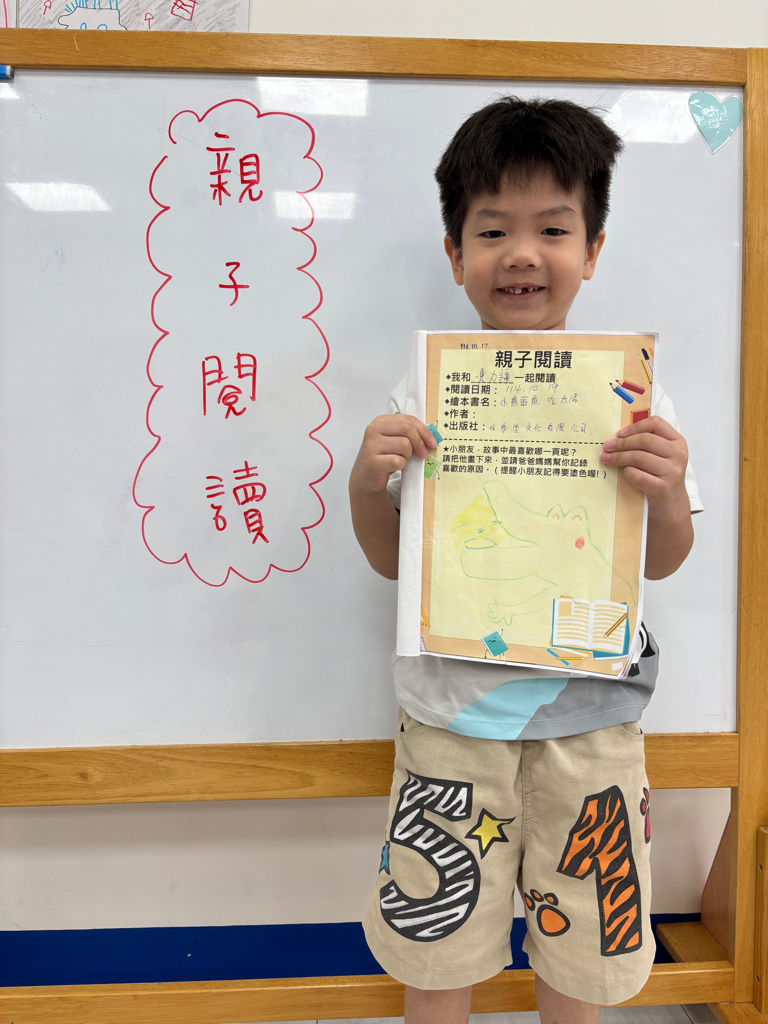 親子閱讀
114.10.17
親子閱讀
◆我和 一起閱讀
◆閱讀日期：114.10.19
◆繪本書名：小 吃太陽
◆作者：
◆出版社： 文化有限公司
★小朋友，故事中最喜歡哪一頁呢？
請把他畫下來，並請爸爸媽媽幫你記錄
喜歡的原因。（提醒小朋友記得要塗色喔！）
51